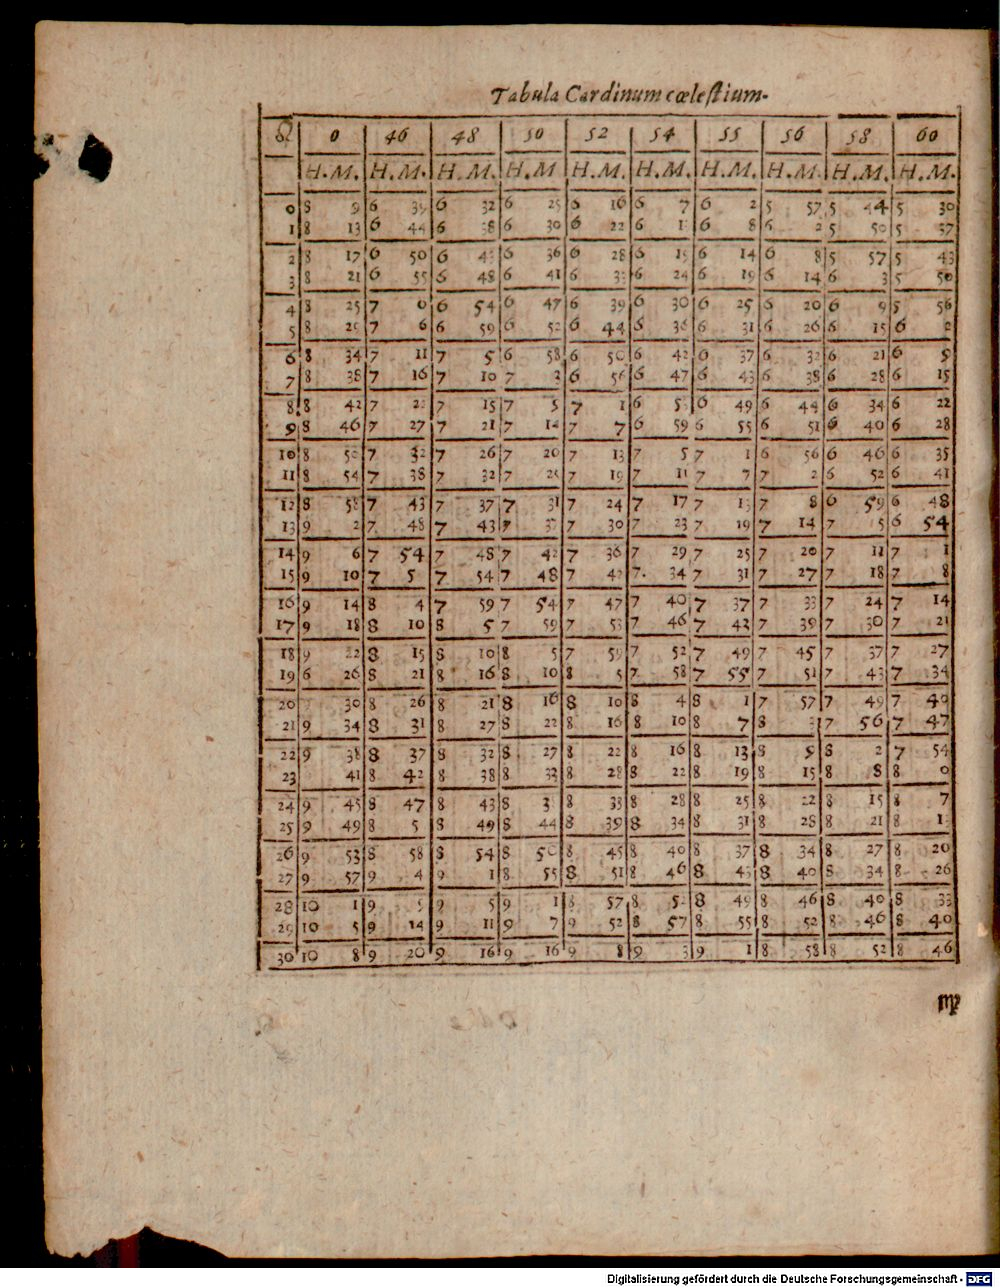 Tabula Cardinum cœlestium.
♌ 0 46 48 50 52 54 55 56 58 60
H. M. H. M. H. M. H. M H. M. H. M. H. M. H. M. H. M. H. M.
0 8 9 6 39 6 32 6 25 6 16 6 7 6 2 5 57 5 44 5 30
1 8 13 6 44 6 38 6 30 6 22 6 1 6 8 6 2 5 50 5 37
2 8 17 6 50 6 4 6 36 6 28 6 19 6 14 6 8 5 57 5 43
3 8 21 6 55 6 48 6 41 6 3 6 24 6 19 6 14 6 3 5 50
4 8 25 7 0 6 54 6 47 6 39 6 30 6 25 6 20 6 9 5 56
5 8 29 7 6 6 59 6 52 6 44 6 36 6 31 6 26 6 15 6 2
6 8 34 7 11 7 5 6 58 6 50 6 42 6 37 6 32 6 21 6 9
7 8 38 7 16 7 10 7 3 6 56 6 47 6 43 6 38 6 28 6 15
8 8 42 7 22 7 15 7 5 7 1 6 5 6 49 6 44 6 34 6 22
9 8 46 7 27 7 21 7 14 7 7 6 59 6 55 6 51 6 40 6 28
10 8 50 7 32 7 26 7 20 7 13 7 5 7 1 6 56 6 46 6 35
11 8 54 7 38 7 32 7 25 7 19 7 11 7 7 7 2 6 52 6 41
12 8 58 7 43 7 37 7 31 7 24 7 17 7 13 7 8 6 59 6 48
13 9 2 7 48 7 43 7 37 7 30 7 23 7 19 7 14 7 5 6 54
14 9 6 7 54 7 48 7 42 7 36 7 29 7 25 7 20 7 11 7 1
15 9 10 7 5 7 54 7 48 7 42 7. 34 7 31 7 27 7 18 7 8
16 9 14 8 4 7 59 7 54 7 47 7 40 7 37 7 33 7 24 7 14
17 9 18 8 10 8 5 7 59 7 53 7 46 7 43 7 39 7 30 7 21
18 9 22 8 15 8 10 8 5 7 59 7 52 7 49 7 45 7 37 7 27
19 6 26 8 21 8 16 8 10 8 5 7 58 7 55 7 51 7 43 7 34
20 30 8 26 8 21 8 16 8 10 8 4 8 1 7 57 7 49 7 40
21 9 34 8 31 8 27 8 22 8 16 8 10 8 7 8 3 7 56 7 47
22 9 38 8 37 8 32 8 27 8 22 8 16 8 13 8 9 8 2 7 54
23 41 8 42 8 38 8 33 8 28 8 22 8 19 8 15 8 8 8 0
24 9 45 8 47 8 43 8 3 8 33 8 28 8 25 8 22 8 15 8 7
25 9 49 8 5 8 49 8 44 8 39 8 34 8 31 8 28 8 21 8 1
26 9 53 8 58 8 54 8 50 8 45 8 40 8 37 8 34 8 27 8 20
27 9 57 9 4 9 1 8 55 8 51 8 46 8 43 8 40 8 34 8 26
28 10 1 9 9 5 9 1 8 57 8 52 8 49 8 46 8 40 8 33
29 10 5 9 14 9 11 9 7 9 52 8 57 8 55 8 52 8 46 8 40
30 10 8 9 20 9 16 9 16 9 8 9 3 9 1 8 58 8 52 8 46
♍
Digitalisierung gefördert durch die Deutsche Forschungsgemeinschaft - DFG